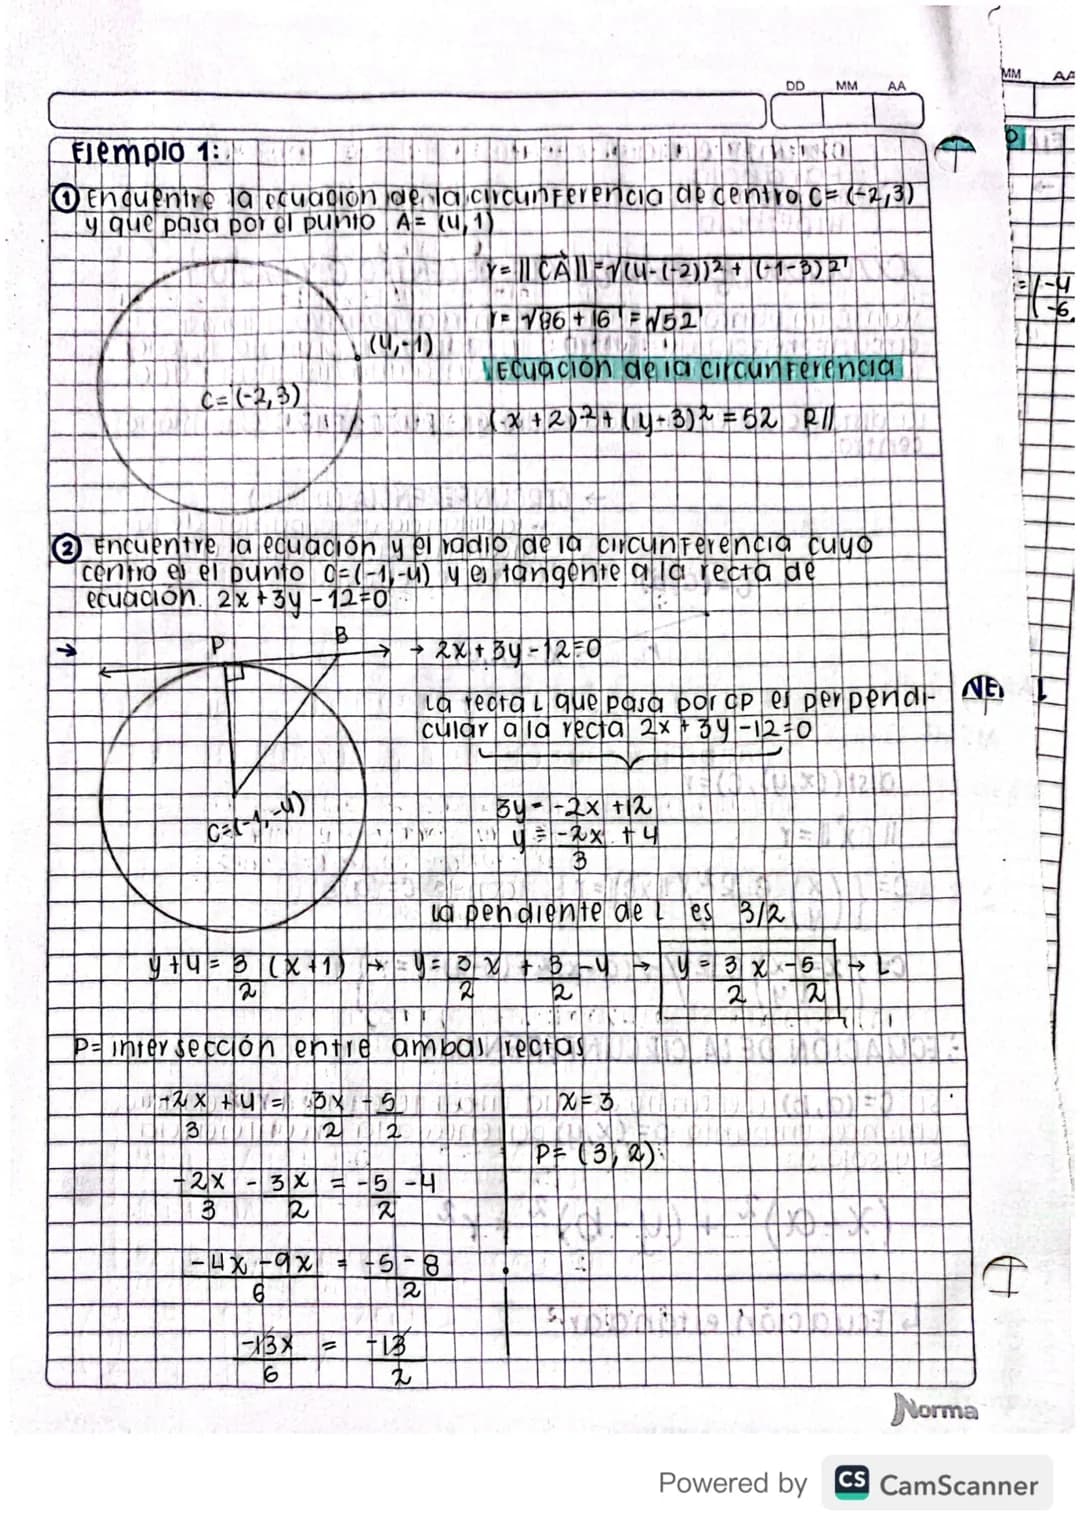 DD MM AA
MM AA
Ejemplo 1:
① Encuentre la ecuación de la circunferencia de centro C=(-2,3)
y que pasa por el punto A= (4,1)
r= ||CA|| = √(4-(-2))² + (-1-3)2
r= √36 + 16 = √52
(4,-1)
Ecuación de la circunferencia
C=(-2,3)
(x+2)² + (y-3)² = 52 R//
② Encuentre la ecuación y el radio de la circunferencia cuyo
centro es el punto C=(-1,-4) y es tangente a la recta de
ecuación. 2x+3y-12=0
→ P B → 2x+3y-12=0
La recta L que pasa por CP es perpendi-
cular a la recta 2x+3y-12=0
C=(-1,-4)
3y = -2x +12
y = -2x + 4
3
la pendiente de L es 3/2
y+4 = 3 (x+1) → y= 3 x + 3 -4 → y = 3 x -5 → L
2 2 2 2 2
P= intersección entre ambas rectas
-2x +4 = 3x - 5 x=3
3 2 2
P= (3,2)
-2x - 3x = -5 -4
3 2 2
-4x -9x = -5-8
6 2
-13x = -13
6 2
Norma
Powered by CS CamScanner